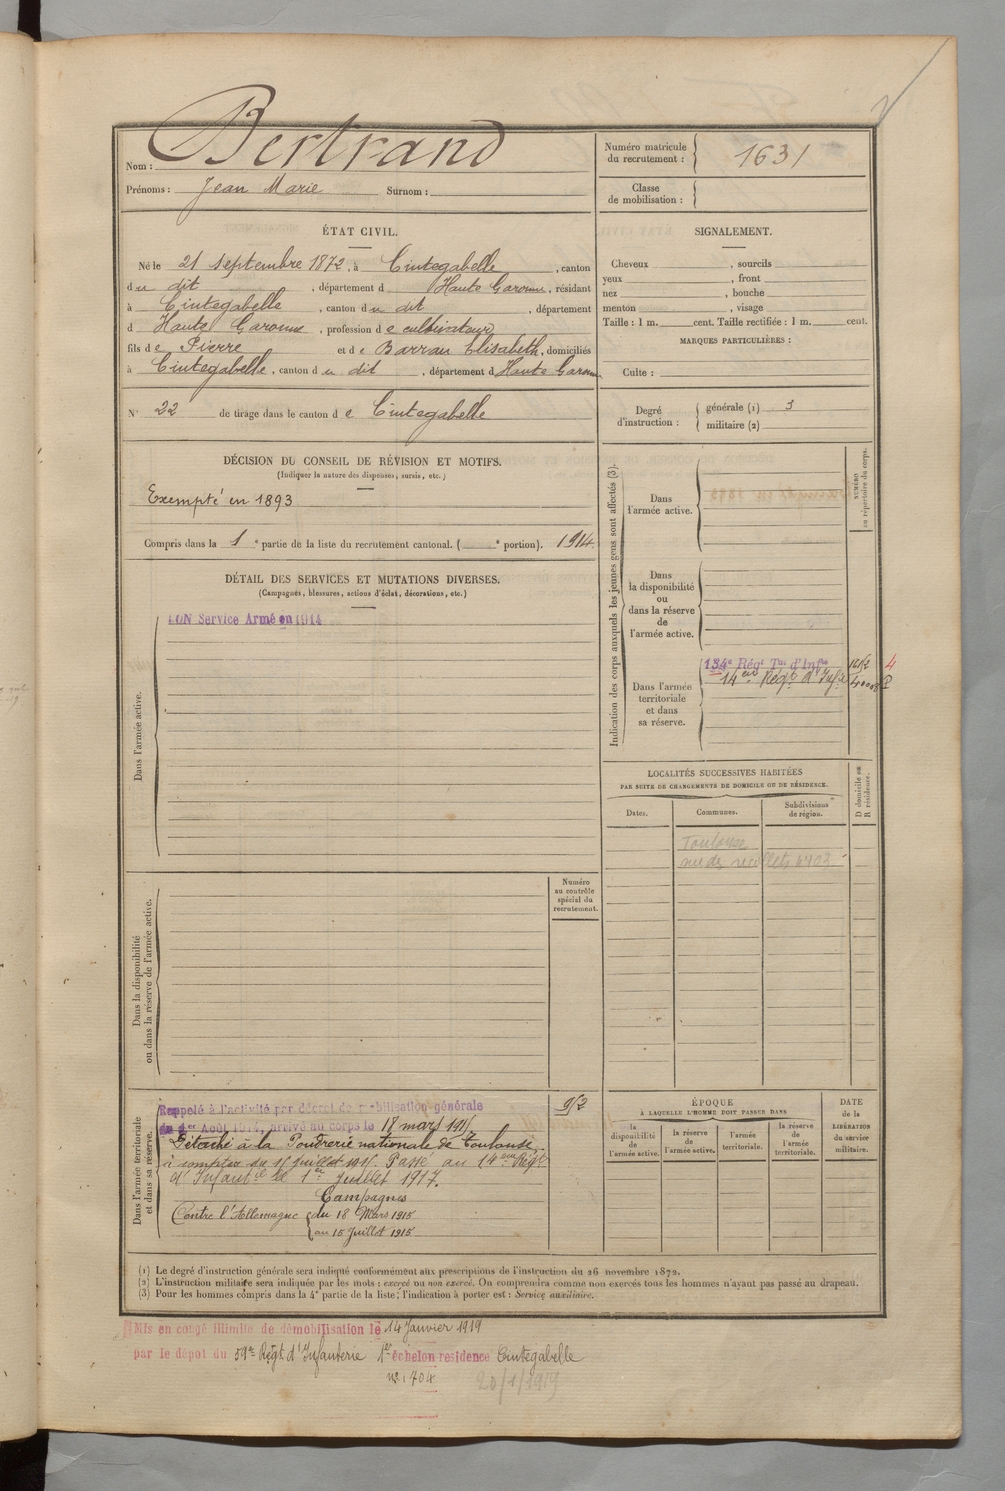 Nom : Bertrand
Prénoms : Jean Marie Surnom :
Numéro matricule
du recrutement : 1631
Classe
de mobilisation :
ÉTAT CIVIL.
Né le 21 septembre 1872, à Cintegabelle, canton
du dit, département d Haute Garonne, résidant
à Cintegabelle, canton du dit, département
d Haute Garonne, profession de cultivateur
fils de Pierre et de Barrau Elisabeth, domiciliés
à Cintegabelle, canton du dit, département d Haute Garonne
N° 22 de tirage dans le canton de Cintegabelle
SIGNALEMENT.
Cheveux , sourcils
yeux , front
nez , bouche
menton , visage
Taille : 1 m. cent. Taille rectifiée : 1 m. cent.
MARQUES PARTICULIÈRES :
Culte :
Degré
d'instruction :
générale (1) 3
militaire (2)
DÉCISION DU CONSEIL DE RÉVISION ET MOTIFS.
(Indiquer la nature des dispenses, sursis, etc.)
Exempté en 1893
Compris dans la 1e partie de la liste du recrutement cantonal. ( e portion). 1914
DÉTAIL DES SERVICES ET MUTATIONS DIVERSES.
(Campagnes, blessures, actions d'éclat, décorations, etc.)
Service Armé en 1914
Dans l'armée active.
Indication des corps auxquels les jeunes gens sont affectés (3).
NUMÉRO
au répertoire du corps.
Dans
l'armée active.
Dans
la disponibilité
ou
dans la réserve
de
l'armée active.
Dans l'armée
territoriale
et dans
sa réserve.
134e Régt Tal d'Infie
14eme Régt d'Infie
LOCALITÉS SUCCESSIVES HABITÉES
PAR SUITE DE CHANGEMENTS DE DOMICILE OU DE RÉSIDENCE.
Dates.
Communes.
Subdivisions
de région.
D domicile ou
R résidence.
Toulouse
Dans la disponibilité
ou dans la réserve de l'armée active.
Numéro
au contrôle
spécial du
recrutement.
952
Dans l'armée territoriale
et dans sa réserve.
Rappelé à l'activité par décret de mobilisation générale
du 1er Août 1914, arrivé au corps le 18 mars 1915
Détaché à la Poudrerie nationale de Toulouse
à compter du 15 juillet 1915. Passé au 14eme Régt
d'Infantie le 1er Juillet 1917.
Campagnes
Contre l'Allemagne du 18 Mars 1915
au 15 Juillet 1915
ÉPOQUE
À LAQUELLE L'HOMME DOIT PASSER DANS
la
disponibilité
de
l'armée active.
la réserve
de
l'armée active.
l'armée
territoriale.
la réserve
de
l'armée
territoriale.
DATE
de la
LIBÉRATION
du service
militaire.
(1) Le degré d'instruction générale sera indiqué conformément aux prescriptions de l'instruction du 26 novembre 1872.
(2) L'instruction militaire sera indiquée par les mots : exercé ou non exercé. On comprendra comme non exercés tous les hommes n'ayant pas passé au drapeau.
(3) Pour les hommes compris dans la 4e partie de la liste, l'indication à porter est : Service auxiliaire.
Mis en congé illimité de démobilisation le 14 Janvier 1919
par le dépôt du 59me Régt d'Infanterie 1er échelon résidence Cintegabelle
n° 1704
20/1/1919